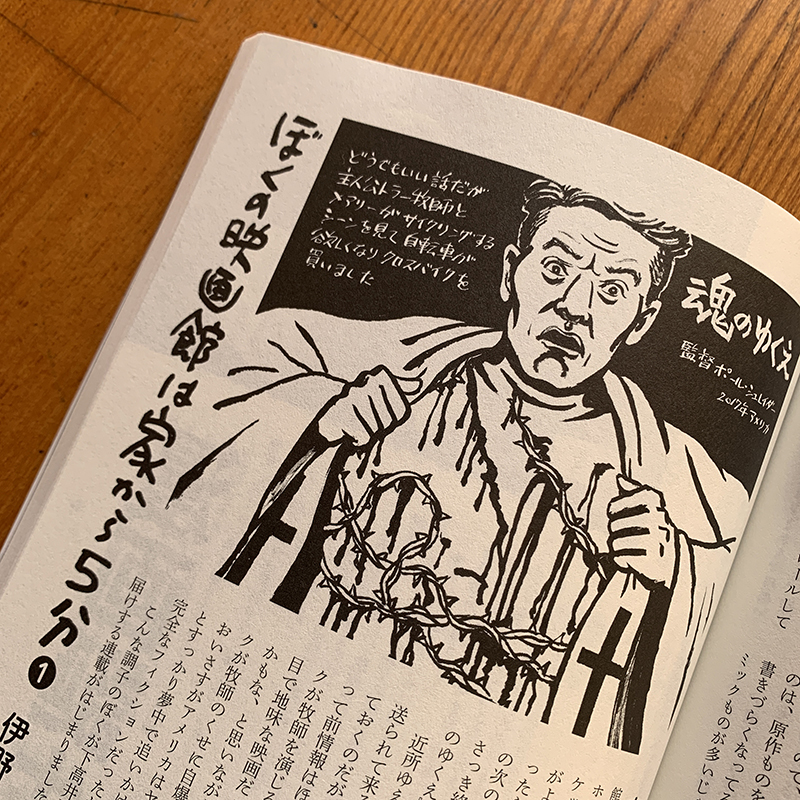 ぼくの映画館は家から5分❶
伊野
どうでもいい話だが
主人公トラー牧師と
メアリーがサイクリングする
シーンを見て自転車が
欲しくなりクロスバイクを
買いました
魂のゆくえ
監督 ポール・シュレイダー
2017年アメリカ
ロールして
のは、原作ものを
書きづらくなってる
ミックものが多いじ
館
ホ
ケ
が上
った
の次の
さつき
のゆくえ
近所ゆえ
送られて来
ておくのだが
って前情報はほ
クが牧師を演じる
目で地味な映画だ
かもな、と思いなが
クが牧師のくせに自爆
おいさすがアメリカはヤ
とすっかり夢中で追いか
完全なフィクションだっ
こんな調子のぼくが下高井
届けする連載がはじまりました